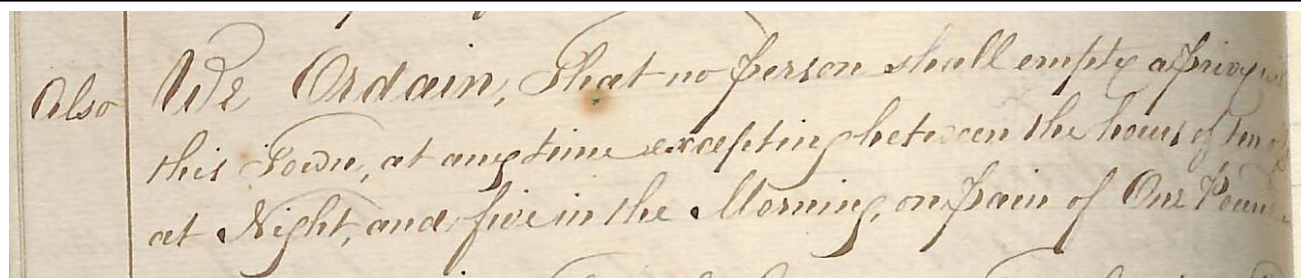 Also We Ordain, That no person shall empty a Privy
this Town, at any time excepting between the hours of ten
at Night, and five in the Morning, on pain of One Pound